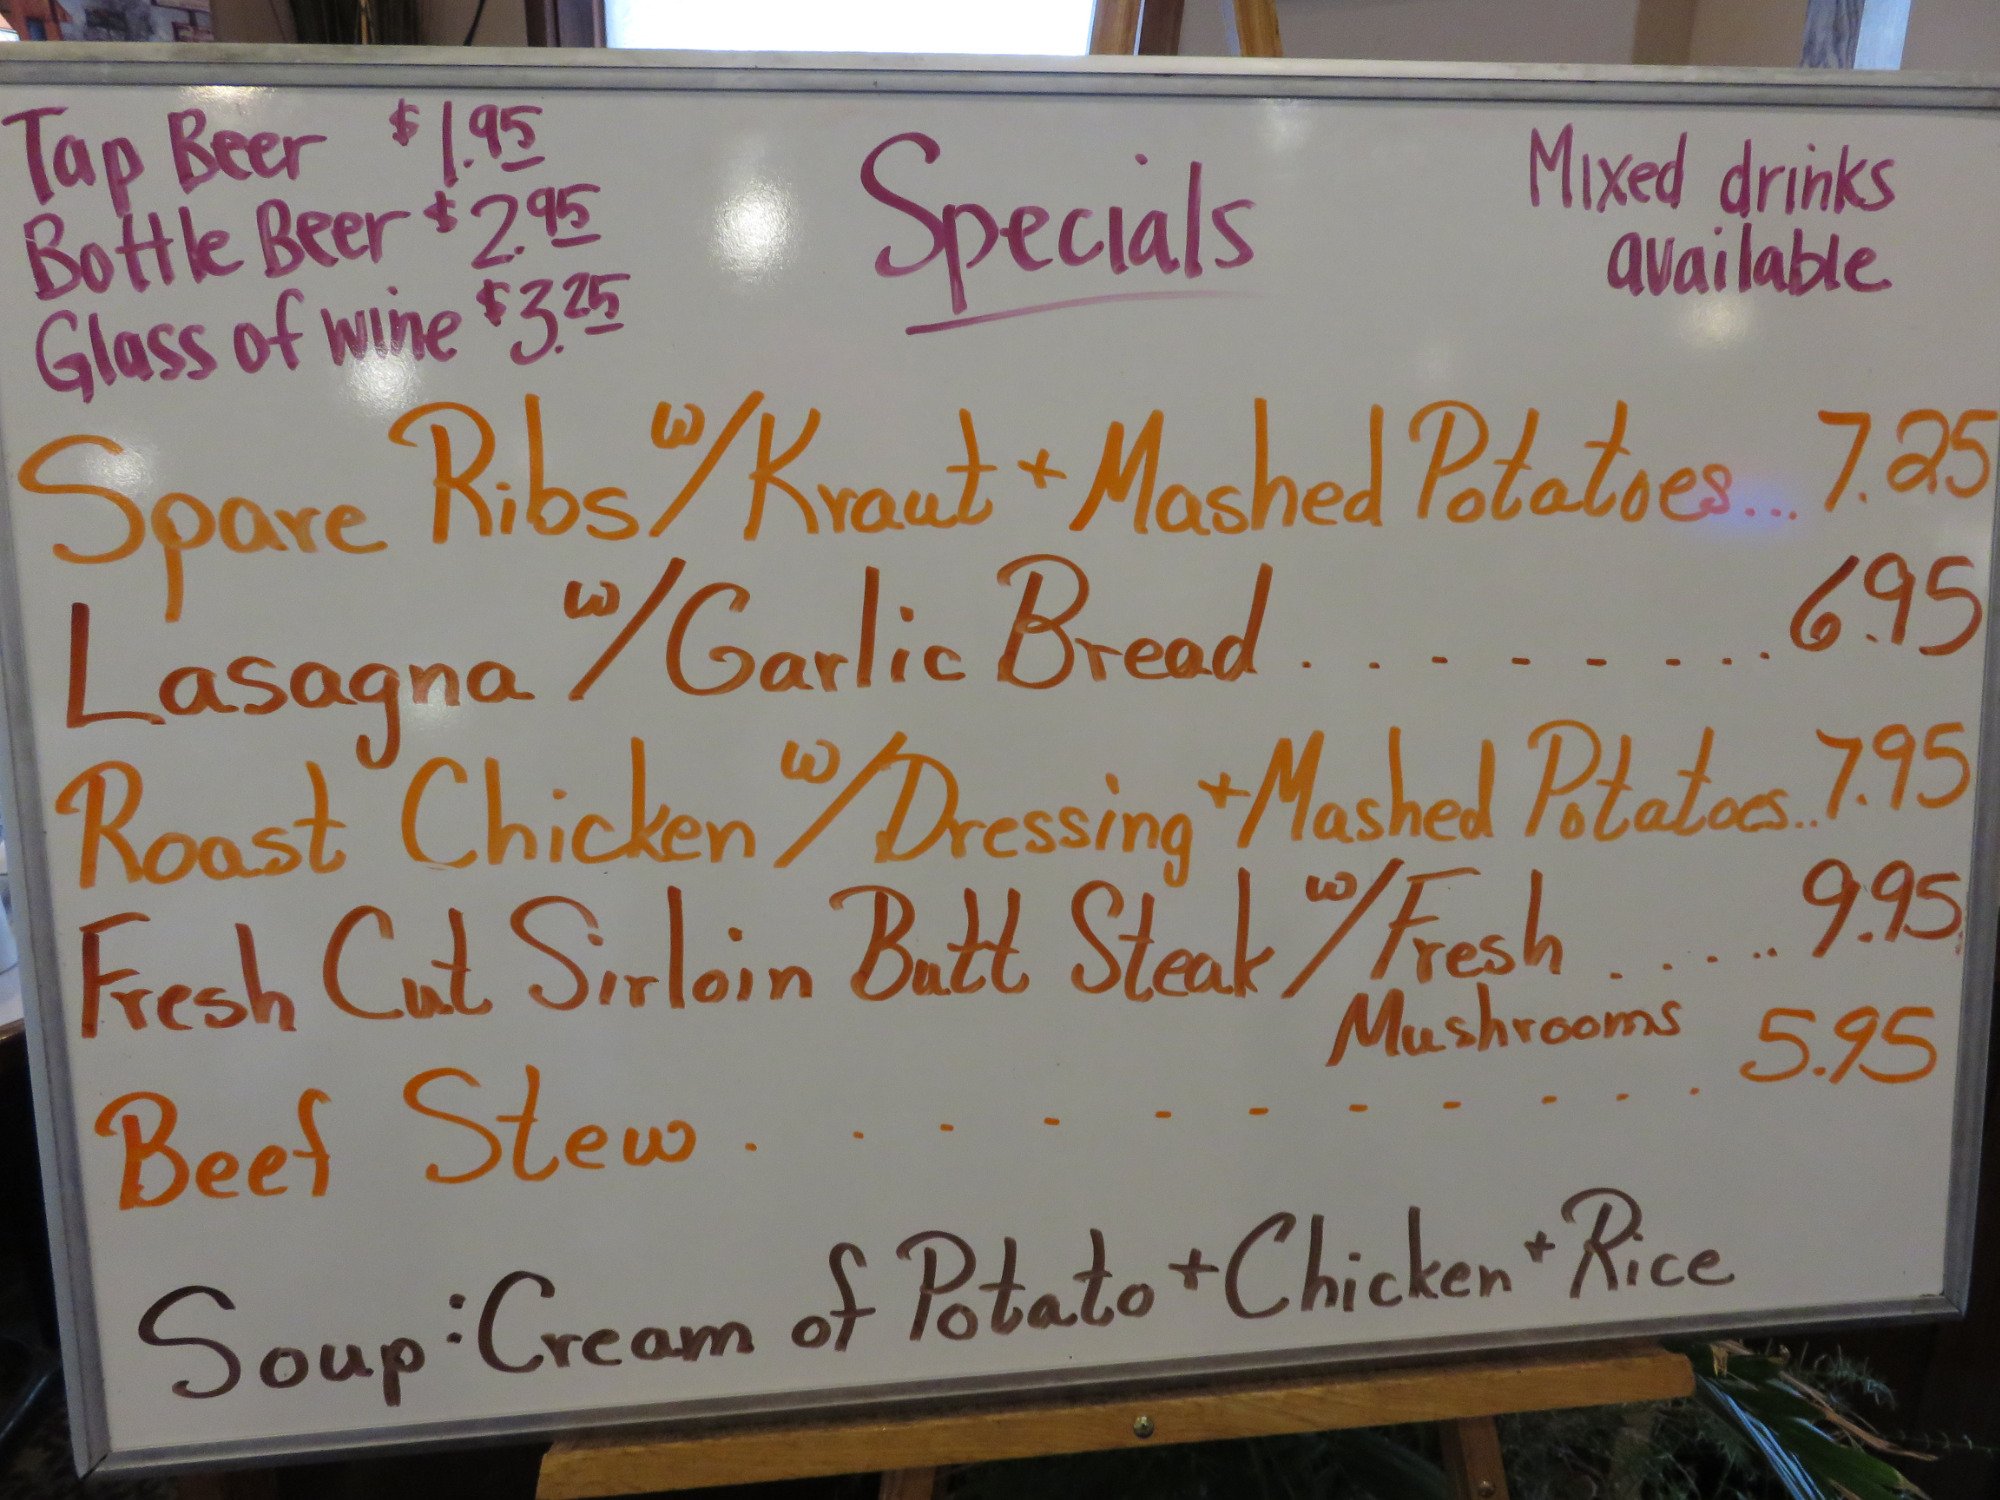 Tap Beer $1.95
Bottle Beer $2.95
Glass of wine $3.25
Specials
Mixed drinks
available
Spare Ribs w/Kraut + Mashed Potatoes... 7.25
Lasagna w/Garlic Bread ......... 6.95
Roast Chicken w/Dressing + Mashed Potatoes.. 7.95
Fresh Cut Sirloin Butt Steak w/Fresh ..... 9.95
Mushrooms
Beef Stew ........... 5.95
Soup: Cream of Potato + Chicken + Rice